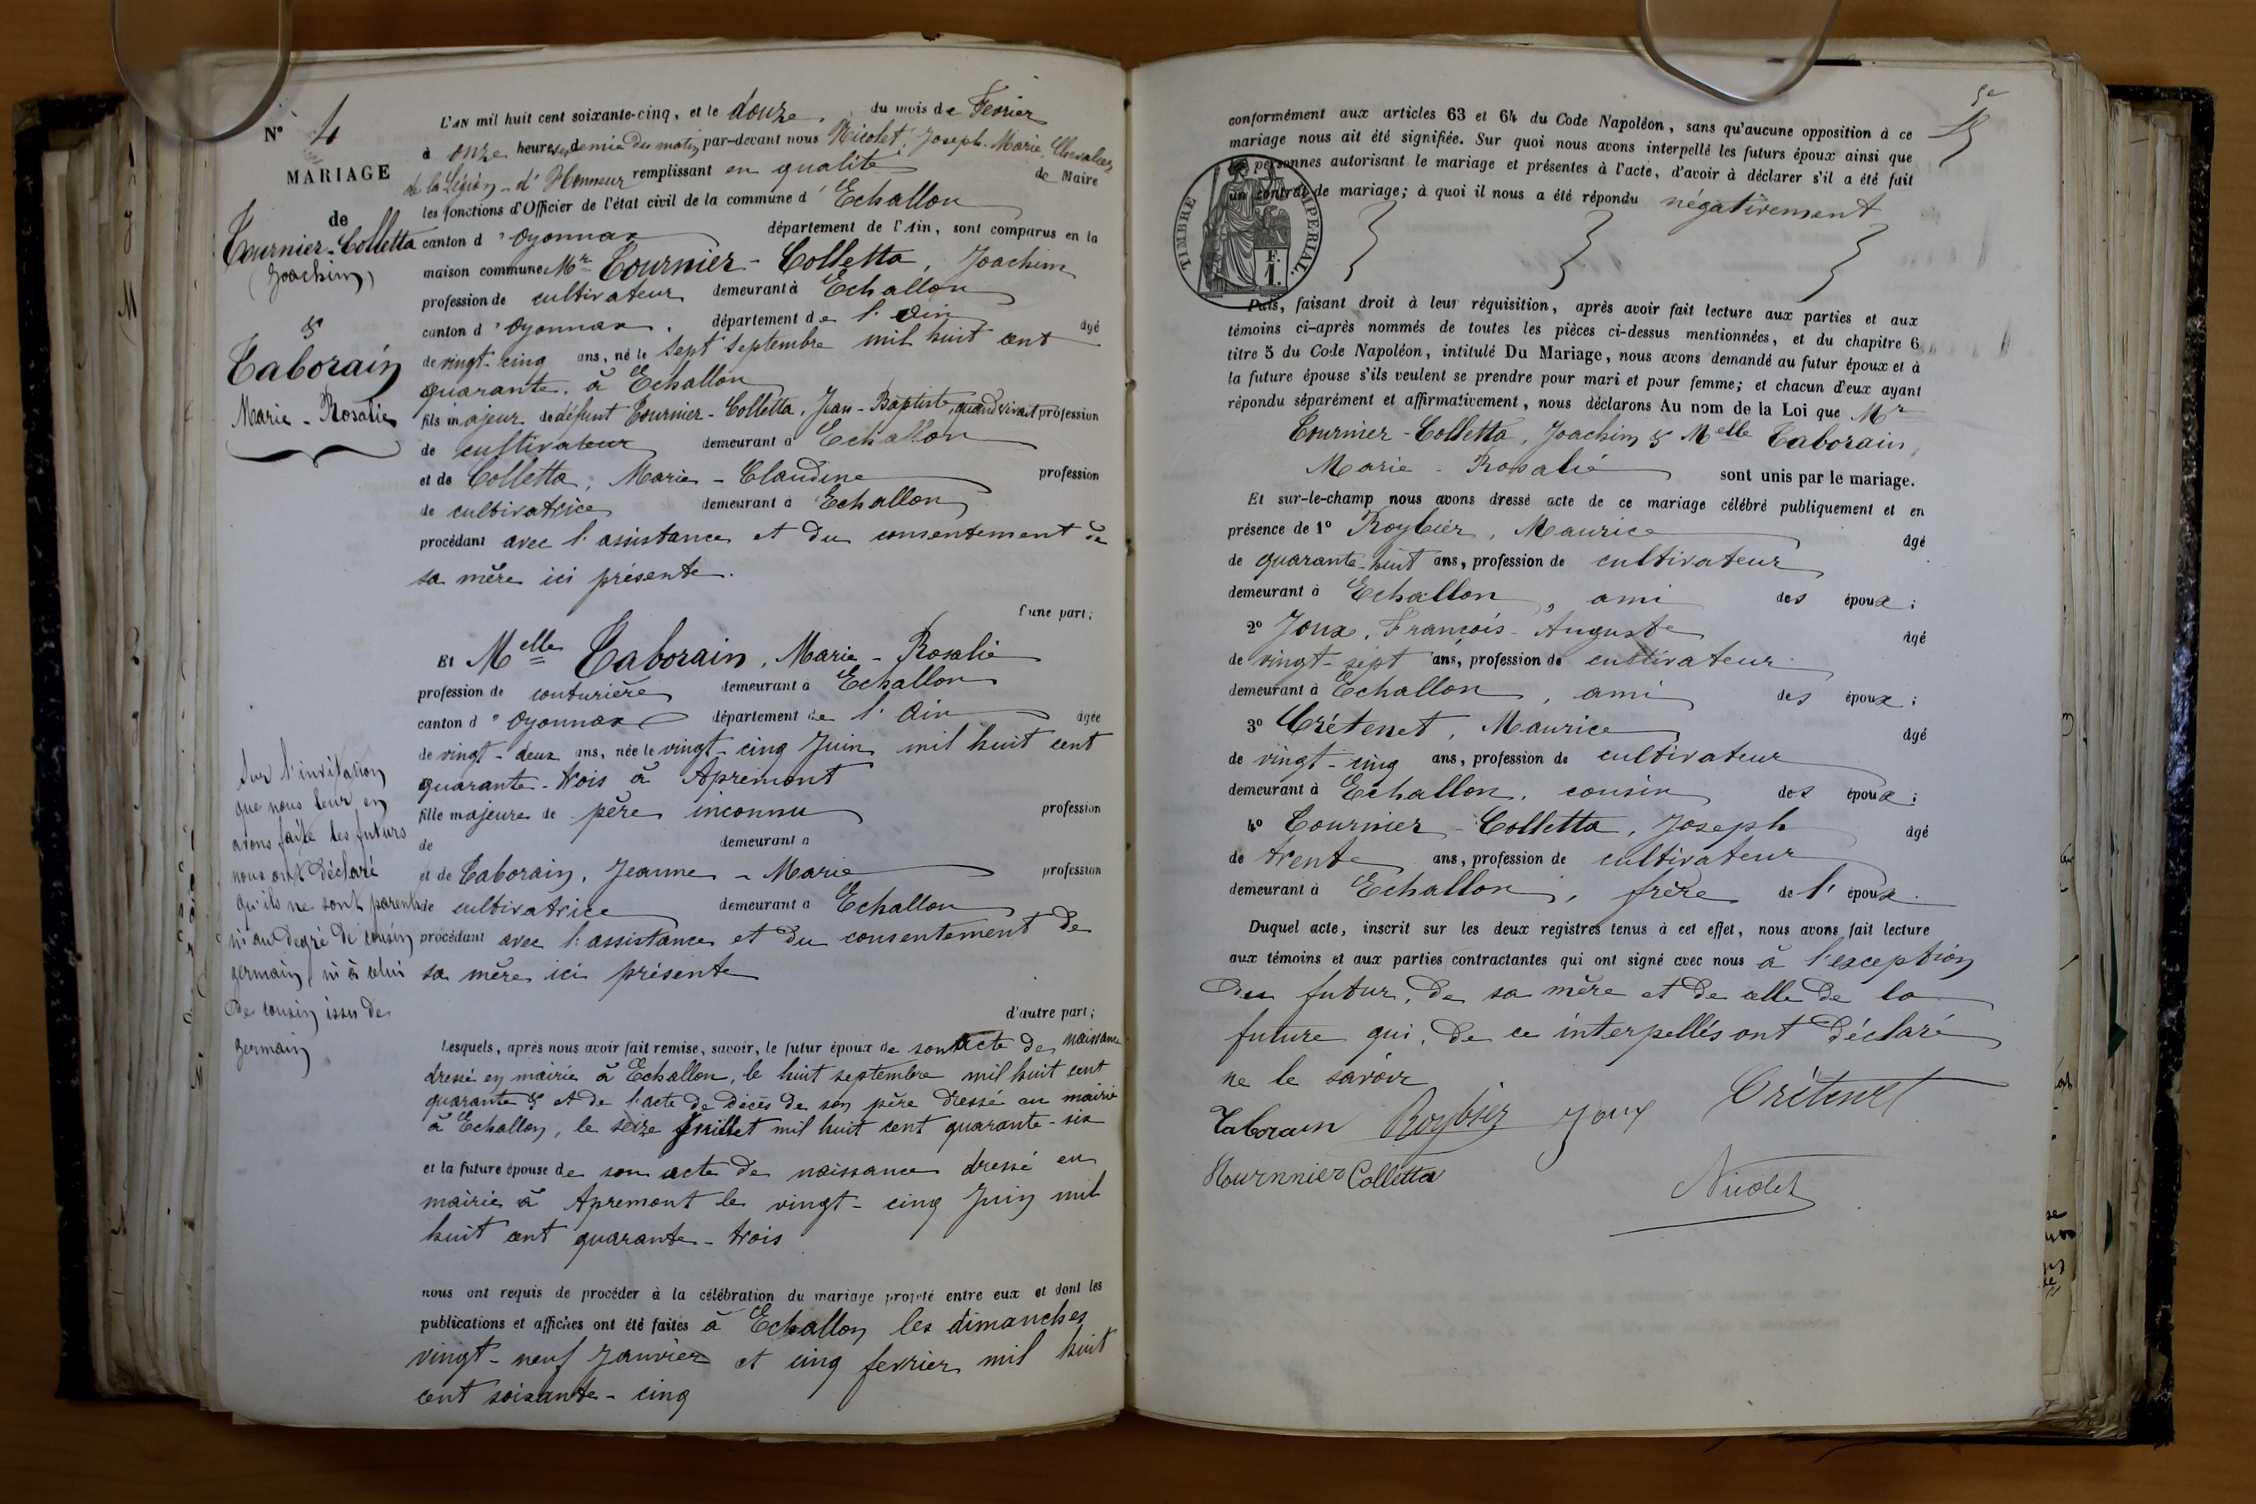 N° 4
MARIAGE
de
Tournier-Colletta
(Joachim)
&
Taborain
Marie - Rosalie
L'AN mil huit cent soixante-cinq, et le douze, du mois de Fevrier
à onze heures et demie du matin par-devant nous Nicolet, Joseph-Marie, Chevalier
de la Légion-d'Honneur remplissant en qualité de Maire
les fonctions d'Officier de l'état civil de la commune d'Echallon
canton d'Oyonnax département de l'Ain, sont comparus en la
maison commune Mr Tournier-Colletta, Joachim
profession de cultivateur demeurant à Echallon
canton d'Oyonnax. département de l'Ain âgé
de vingt-cinq ans, né le sept septembre mil huit cent
quarante. à Echallon
fils majeur de défunt Tournier-Colletta, Jean-Baptiste, quand vivait profession
de cultivateur demeurant à Echallon
et de Colletta, Marie-Claudine profession
de cultivatrice demeurant à Echallon
procédant avec l'assistance et du consentement de
sa mère ici présente.
d'une part;
Et Melle Taborain, Marie-Rosalie
profession de couturière demeurant à Echallon
canton d'Oyonnax département de l'Ain âgée
de vingt-deux ans, née le vingt-cinq Juin mil huit cent
quarante-trois à Apremont
fille majeure de père inconnu profession
de demeurant à
et de Taborain, Jeanne-Marie profession
de cultivatrice demeurant à Echallon
procédant avec l'assistance et du consentement de
sa mère ici présente
d'autre part;
Sur l'invitation
que nous leur en
avons faite les futurs
nous ont déclaré
qu'ils ne sont parents
ni au degré de cousin
germain, ni à celui
de cousin issu de
germain
Lesquels, après nous avoir fait remise, savoir, le futur époux de son acte de naissance
dressé en mairie à Echallon, le huit septembre mil huit cent
quarante & et de l'acte de décès de son père dressé en mairie
à Echallon, le seize Juillet mil huit cent quarante-six
et la future épouse de son acte de naissance dressé en
mairie à Apremont le vingt-cinq Juin mil
huit cent quarante-trois
nous ont requis de procéder à la célébration du mariage projeté entre eux et dont les
publications et affiches ont été faites à Echallon les dimanches
vingt-neuf Janvier et cinq fevrier mil huit
cent soixante-cinq
conformément aux articles 63 et 64 du Code Napoléon, sans qu'aucune opposition à ce
mariage nous ait été signifiée. Sur quoi nous avons interpellé les futurs époux ainsi que
les personnes autorisant le mariage et présentes à l'acte, d'avoir à déclarer s'il a été fait
un contrat de mariage; à quoi il nous a été répondu négativement
TIMBRE IMPERIAL.
F.
1.
Puis, faisant droit à leur réquisition, après avoir fait lecture aux parties et aux
témoins ci-après nommés de toutes les pièces ci-dessus mentionnées, et du chapitre 6
titre 5 du Code Napoléon, intitulé Du Mariage, nous avons demandé au futur époux et à
la future épouse s'ils veulent se prendre pour mari et pour femme; et chacun d'eux ayant
répondu séparément et affirmativement, nous déclarons Au nom de la Loi que Mr
Tournier-Colletta, Joachim & Melle Taborain,
Marie-Rosalie sont unis par le mariage.
Et sur-le-champ nous avons dressé acte de ce mariage célébré publiquement et en
présence de 1° Roybier, Maurice âgé
de quarante-huit ans, profession de cultivateur
demeurant à Echallon, ami des époux;
2° Joux, François-Auguste âgé
de vingt-sept ans, profession de cultivateur
demeurant à Echallon, ami des époux;
3° Crétenet, Maurice âgé
de vingt-cinq ans, profession de cultivateur
demeurant à Echallon, cousin des époux;
4° Tournier-Colletta, Joseph âgé
de trente ans, profession de cultivateur
demeurant à Echallon, frère de l'époux.
Duquel acte, inscrit sur les deux registres tenus à cet effet, nous avons fait lecture
aux témoins et aux parties contractantes qui ont signé avec nous à l'exception
du futur, de sa mère et de celle de la
future qui, de ce interpellés ont déclaré
ne le savoir
Taborain Roybier Joux Crétenet
Tournnier Colletta
Nicolet